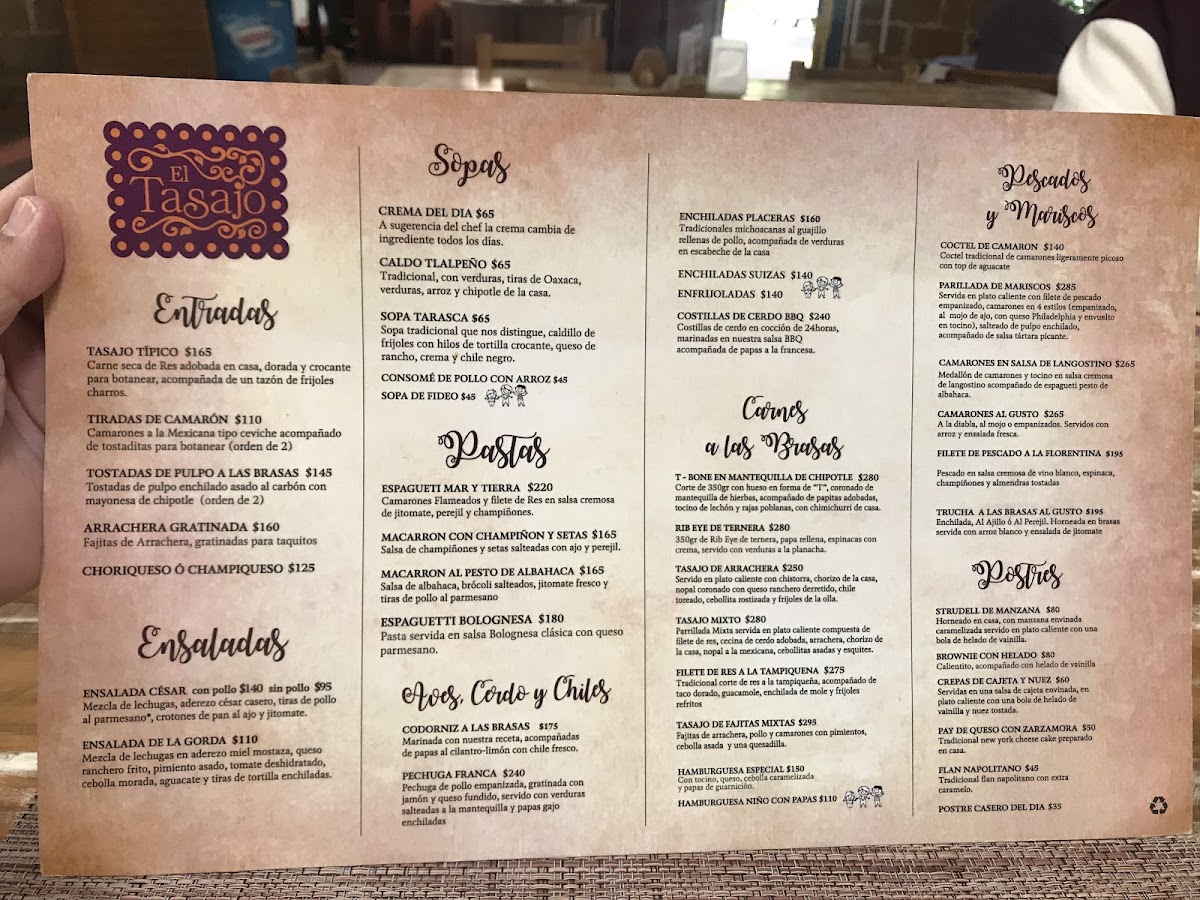 El
Tasajo
Entradas
TASAJO TÍPICO $165
Carne seca de Res adobada en casa, dorada y crocante
para botanear, acompañada de un tazón de frijoles
charros.
TIRADAS DE CAMARÓN $110
Camarones a la Mexicana tipo ceviche acompañado
de tostaditas para botanear (orden de 2)
TOSTADAS DE PULPO A LAS BRASAS $145
Tostadas de pulpo enchilado asado al carbón con
mayonesa de chipotle (orden de 2)
ARRACHERA GRATINADA $160
Fajitas de Arrachera, gratinadas para taquitos
CHORIQUESO Ó CHAMPIQUESO $125
Ensaladas
ENSALADA CÉSAR con pollo $140 sin pollo $95
Mezcla de lechugas, aderezo césar casero, tiras de pollo
al parmesano*, crotones de pan al ajo y jitomate.
ENSALADA DE LA GORDA $110
Mezcla de lechugas en aderezo miel mostaza, queso
ranchero frito, pimiento asado, tomate deshidratado,
cebolla morada, aguacate y tiras de tortilla enchiladas.
Sopas
CREMA DEL DIA $65
A sugerencia del chef la crema cambia de
ingrediente todos los días.
CALDO TLALPEÑO $65
Tradicional, con verduras, tiras de Oaxaca,
verduras, arroz y chipotle de la casa.
SOPA TARASCA $65
Sopa tradicional que nos distingue, caldillo de
frijoles con hilos de tortilla crocante, queso de
rancho, crema y chile negro.
CONSOMÉ DE POLLO CON ARROZ $45
SOPA DE FIDEO $45
Pastas
ESPAGUETI MAR Y TIERRA $220
Camarones Flameados y filete de Res en salsa cremosa
de jitomate, perejil y champiñones.
MACARRON CON CHAMPIÑON Y SETAS $165
Salsa de champiñones y setas salteadas con ajo y perejil.
MACARRON AL PESTO DE ALBAHACA $165
Salsa de albahaca, brócoli salteados, jitomate fresco y
tiras de pollo al parmesano
ESPAGUETTI BOLOGNESA $180
Pasta servida en salsa Bolognesa clásica con queso
parmesano.
Aves, Cerdo y Chiles
CODORNIZ A LAS BRASAS $175
Marinada con nuestra receta, acompañadas
de papas al cilantro-limón con chile fresco.
PECHUGA FRANCA $240
Pechuga de pollo empanizada, gratinada con
jamón y queso fundido, servido con verduras
salteadas a la mantequilla y papas gajo
enchiladas
ENCHILADAS PLACERAS $160
Tradicionales michoacanas al guajillo
rellenas de pollo, acompañada de verduras
en escabeche de la casa
ENCHILADAS SUIZAS $140
ENFRIJOLADAS $140
COSTILLAS DE CERDO BBQ $240
Costillas de cerdo en cocción de 24horas,
marinadas en nuestra salsa BBQ
acompañada de papas a la francesa.
Carnes
a las Brasas
T - BONE EN MANTEQUILLA DE CHIPOTLE $280
Corte de 350gr con hueso en forma de "T", coronado de
mantequilla de hierbas, acompañado de papitas adobadas,
tocino de lechón y rajas poblanas, con chimichurri de casa.
RIB EYE DE TERNERA $280
350gr de Rib Eye de ternera, papa rellena, espinacas con
crema, servido con verduras a la planacha.
TASAJO DE ARRACHERA $250
Servido en plato caliente con chistorra, chorizo de la casa,
nopal coronado con queso ranchero derretido, chile
toreado, cebollita rostizada y frijoles de la olla.
TASAJO MIXTO $280
Parrillada Mixta servida en plato caliente compuesta de
filete de res, cecina de cerdo adobada, arrachera, chorizo de
la casa, nopal a la mexicana, cebollitas asadas y esquites.
FILETE DE RES A LA TAMPIQUENA $275
Tradicional corte de res a la tampiqueña, acompañado de
taco dorado, guacamole, enchilada de mole y frijoles
refritos
TASAJO DE FAJITAS MIXTAS $295
Fajitas de arrachera, pollo y camarones con pimientos,
cebolla asada y una quesadilla.
HAMBURGUESA ESPECIAL $150
Con tocino, queso, cebolla caramelizada
y papas de guarnición.
HAMBURGUESA NIÑO CON PAPAS $110
Pescados
y Mariscos
COCTEL DE CAMARON $140
Coctel tradicional de camarones ligeramente picoso
con top de aguacate
PARILLADA DE MARISCOS $285
Servida en plato caliente con filete de pescado
empanizado, camarones en 4 estilos (empanizado,
al mojo de ajo, con queso Philadelphia y envuelto
en tocino), salteado de pulpo enchilado,
acompañado de salsa tártara picante.
CAMARONES EN SALSA DE LANGOSTINO $265
Medallón de camarones y tocino en salsa cremosa
de langostino acompañado de espagueti pesto de
albahaca.
CAMARONES AL GUSTO $265
A la diabla, al mojo o empanizados. Servidos con
arroz y ensalada fresca.
FILETE DE PESCADO A LA FLORENTINA $195
Pescado en salsa cremosa de vino blanco, espinaca,
champiñones y almendras tostadas
TRUCHA A LAS BRASAS AL GUSTO $195
Enchilada, Al Ajillo ó Al Perejil. Horneada en brasas
servida con arroz blanco y ensalada de jitomate
Postres
STRUDELL DE MANZANA $80
Horneado en casa, con manzana envinada
caramelizada servido en plato caliente con una
bola de helado de vainilla.
BROWNIE CON HELADO $80
Calientito, acompañado con helado de vainilla
CREPAS DE CAJETA Y NUEZ $60
Servidas en una salsa de cajeta envinada, en
plato caliente con una bola de helado de
vainilla y nuez tostada.
PAY DE QUESO CON ZARZAMORA $50
Tradicional new york cheese cake preparado
en casa.
FLAN NAPOLITANO $45
Tradicional flan napolitano con extra
caramelo.
POSTRE CASERO DEL DIA $35